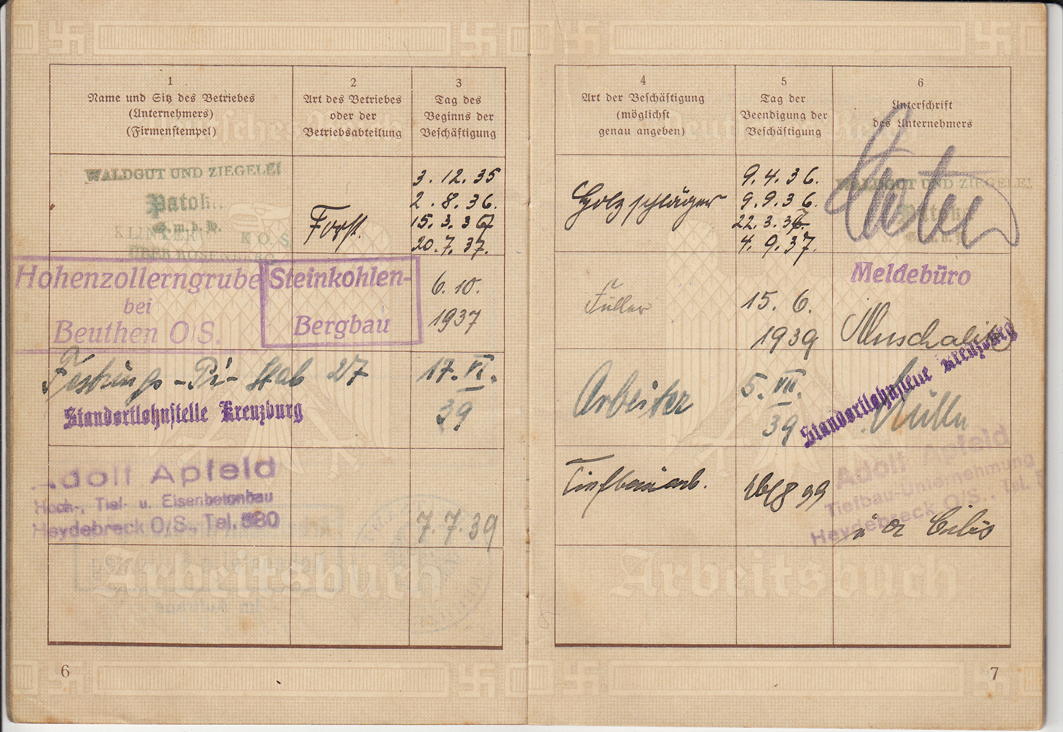 1
Name und Sitz des Betriebes
(Unternehmers)
(Firmenstempel)
2
Art des Betriebes
oder der
Betriebsabteilung
3
Tag des
Beginns der
Beschäftigung
WALDGUT UND ZIEGELEI
Patok
G.m.b.H.
Forst.
3.12.35
2.8.36.
15.3.37
20.7.37.
Hohenzollerngrube
bei
Beuthen O/S.
Steinkohlen-
Bergbau
6.10.
1937
Festungs-Pi-Stab 27
Standortlohnstelle Kreuzburg
17.VI.
39
Adolf Apfeld
Hoch-, Tief- u. Eisenbetonbau
Heydebreck O/S., Tel. 380
7.7.39
Arbeitsbuch
6
4
Art der Beschäftigung
(möglichst
genau angeben)
5
Tag der
Beendigung der
Beschäftigung
6
Unterschrift
des Unternehmers
Holzschläger
9.4.36.
9.9.36.
22.3.37.
4.9.37.
WALDGUT UND ZIEGELEI
Patok
Füller
15.6.
1939
Meldebüro
Arbeiter
5.VII.
39
Standortlohnstelle Kreuzburg
Tiefbauarb.
26/8 39
Adolf Apfeld
Tiefbau-Unternehmung
Heydebreck O/S., Tel.
Arbeitsbuch
7